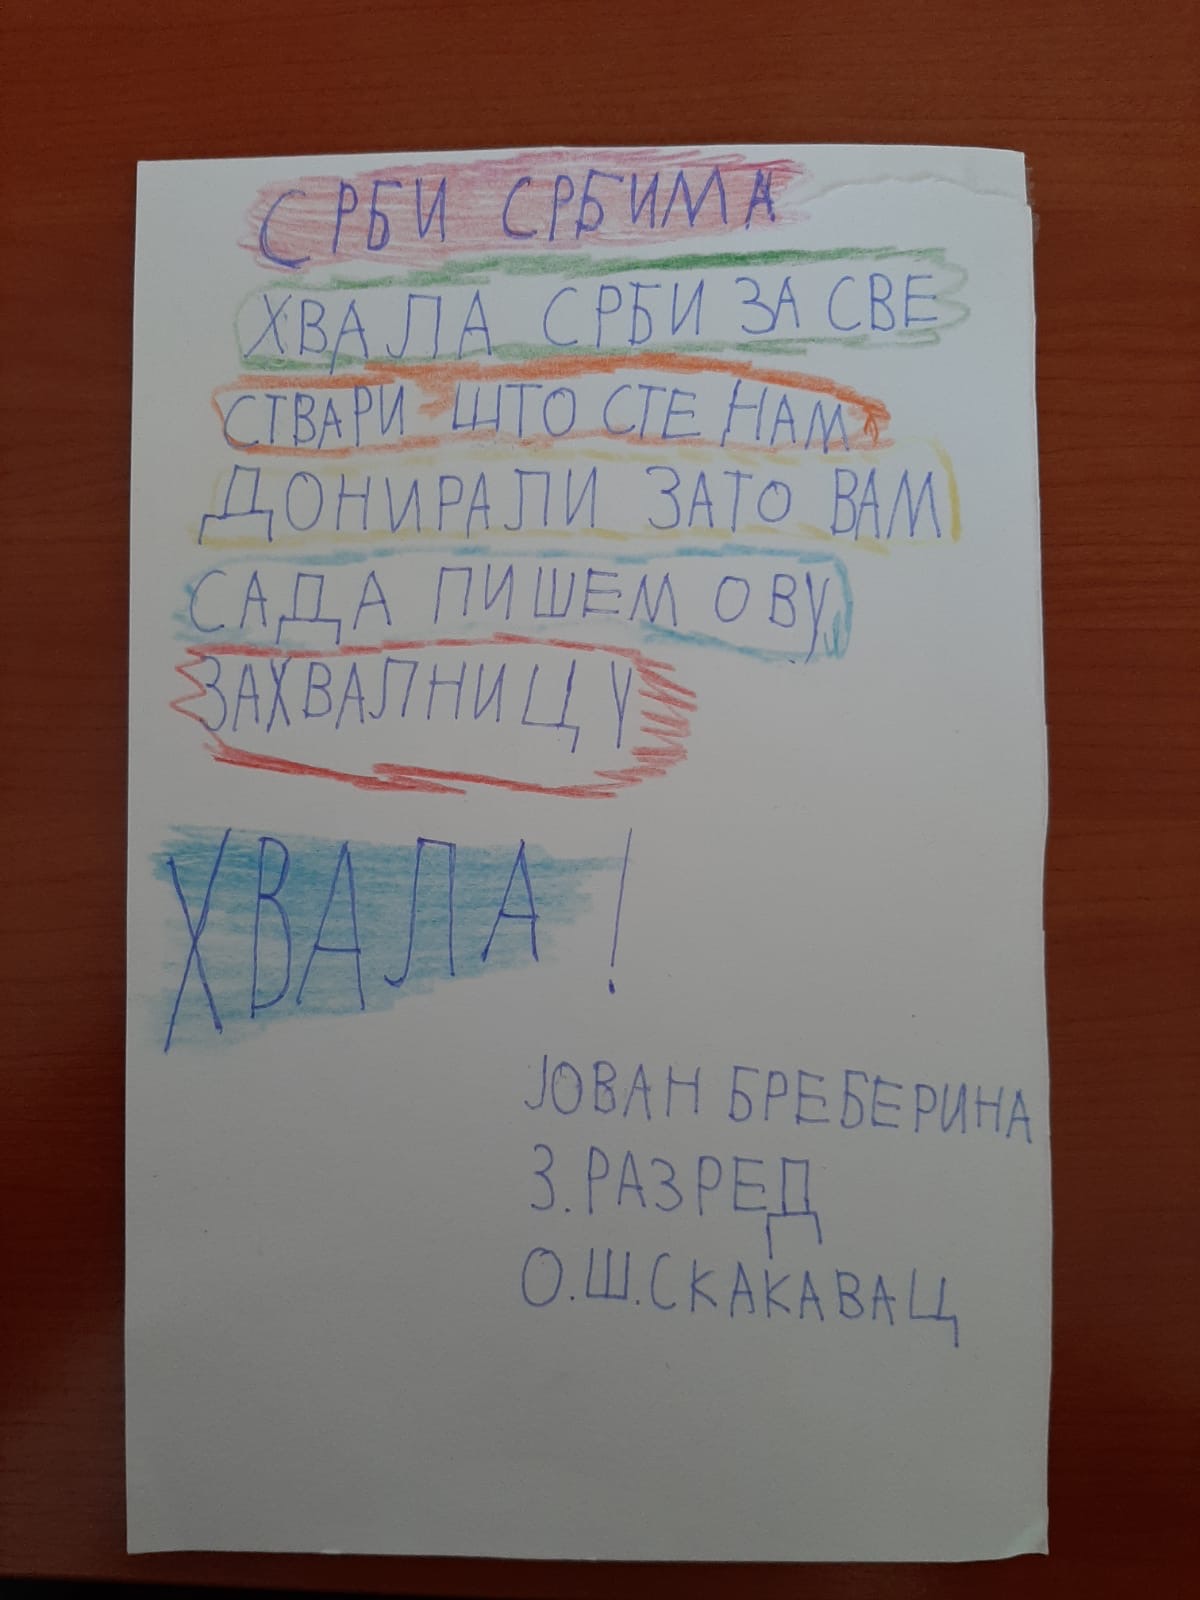 СРБИ СРБИМА
ХВАЛА СРБИ ЗА СВЕ
СТВАРИ ШТО СТЕ НАМ
ДОНИРАЛИ ЗАТО ВАМ
САДА ПИШЕМ ОВУ
ЗАХВАЛНИЦУ
ХВАЛА!
ЈОВАН БРЕБЕРИНА
3. РАЗРЕД
О.Ш. СКАКАВАЦ